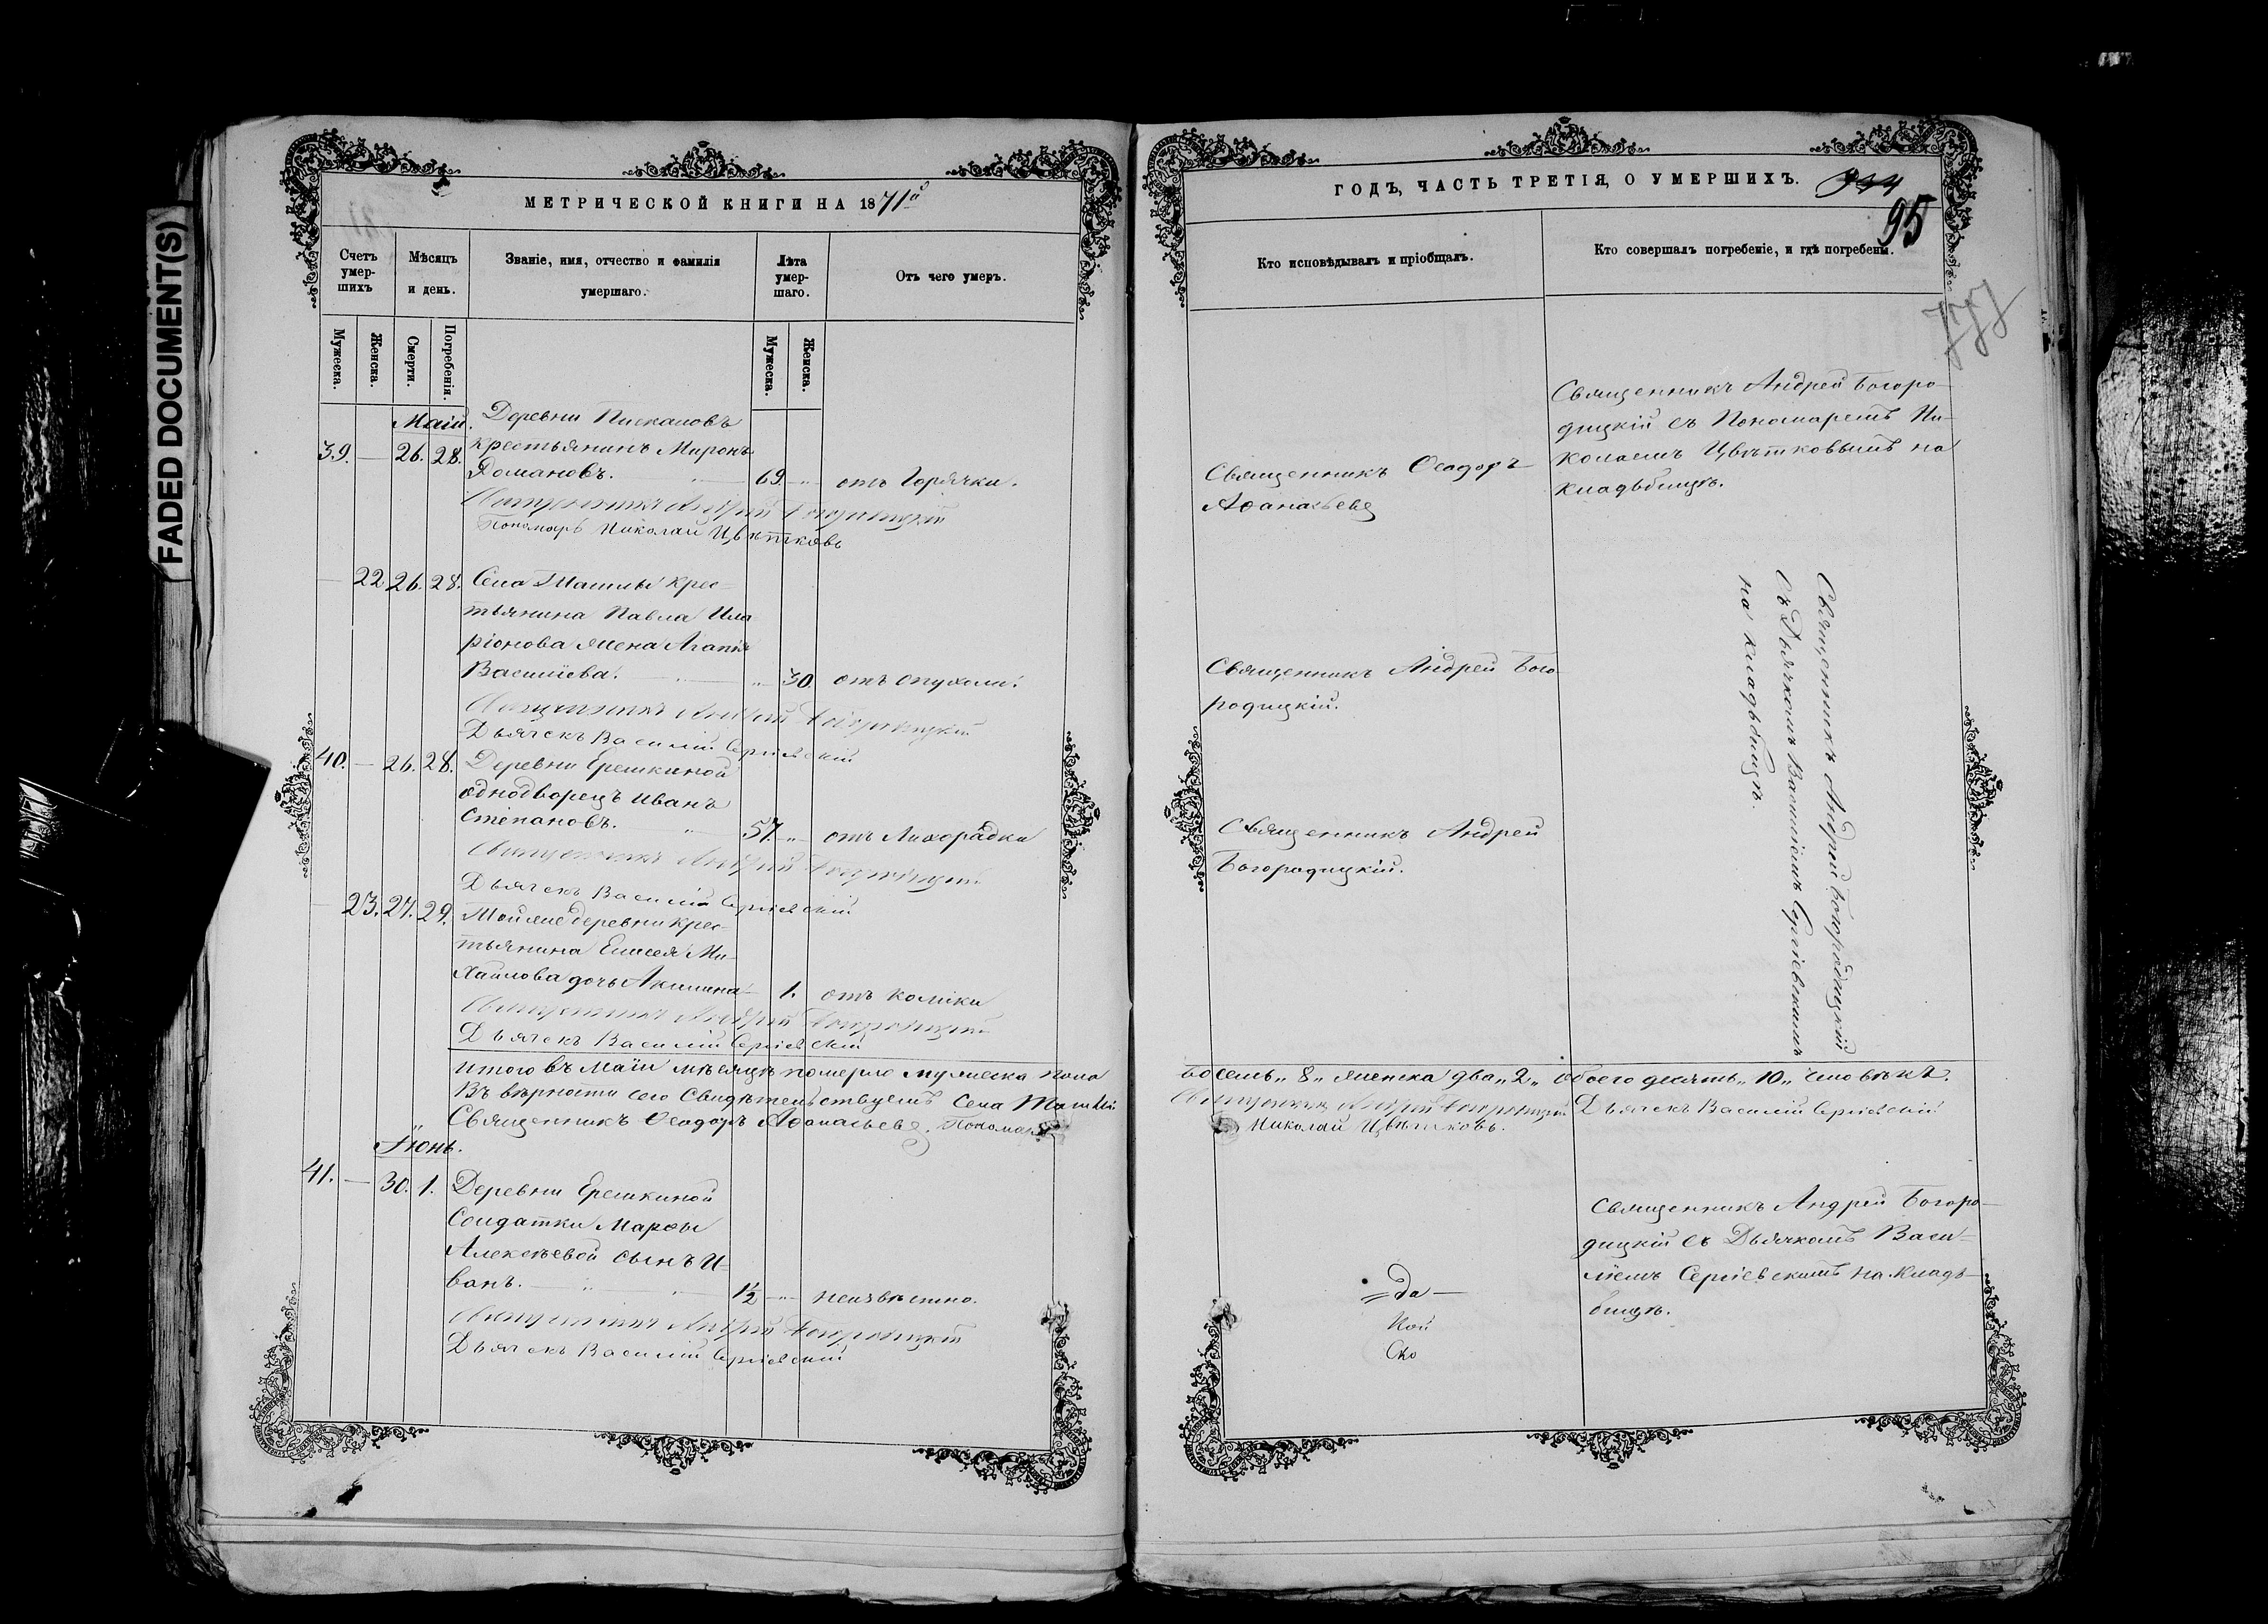 FADED DOCUMENT(S)
МЕТРИЧЕСКОЙ КНИГИ НА 1871й
Счетъ умер-шихъ
Мѣсяцъ и день.
Званіе, имя, отчество и фамилія умершаго.
Лѣта умер-шаго.
Отъ чего умеръ.
Мужеска.
Женска.
Смерти.
Погребенія.
Мужеска.
Женска.
Маій. Деревни
39. — 26. 28. крестьянинъ Миронъ
Романовъ. 69. „ отъ Горячки.
Священникъ Андрей Богородицкій
Пономарь Николай Цвѣтковъ
— 22 26. 28. Села Ташлы крес-
тьянина Павла Ила-
ріонова жена Агапія
Васильева. „ 30. отъ опухоли.
Священникъ Андрей Богородицкій
Дьячекъ Василій Сергіевскій
40. — 26. 28. Деревни Ерешкиной
однодворецъ Иванъ
Степановъ. 57. „ отъ Лихорадки
Священникъ Андрей Богородицкій
Дьячекъ Василій Сергіевскій
— 23. 27. 29. Той же деревни крес-
тьянина Елисея Ми-
хайлова дочь Акилина 1. отъ колики
Священникъ Андрей Богородицкій
Дьячекъ Василій Сергіевскій
Итого въ Маіи мѣсяцѣ померло мужеска пола
Въ вѣрности сего Свидѣтельствуемъ Села Ташлы
Священникъ Ѳеодоръ Аѳанасьевъ. Пономарь
Іюнь.
41. — 30. 1. Деревни Ерешкиной
Солдатки Марѳы
Алексѣевой сынъ И-
ванъ. 1½ „ неизвѣстно.
Священникъ Андрей Богородицкій
Дьячекъ Василій Сергіевскій
ГОДЪ, ЧАСТЬ ТРЕТІЯ, О УМЕРШИХЪ.
95
Кто исповѣдывалъ и пріобщалъ.
Кто совершалъ погребеніе, и гдѣ погребены.
Священникъ Ѳеодоръ
Аѳанасьевъ
Священникъ Андрей Богоро-
дицкій съ Пономаремъ Ни-
колаемъ Цвѣтковымъ на
кладьбищѣ.
Священникъ Андрей Бого
родицкій.
Священникъ Андрей
Богородицкій.
Священникъ Андрей Богородицкій
Съ Дьячкомъ Василіемъ Сергіевскимъ
на кладьбищѣ.
восемь „8„ женска два „2„ обоего десять „10„ человѣкъ.
Священникъ Андрей Богородицкій Дьячекъ Василій Сергіевскій
Николай Цвѣтковъ.
Священникъ Андрей Богоро-
дицкій съ Дьячкомъ Васи-
ліемъ Сергіевскимъ на кладь-
бищѣ.